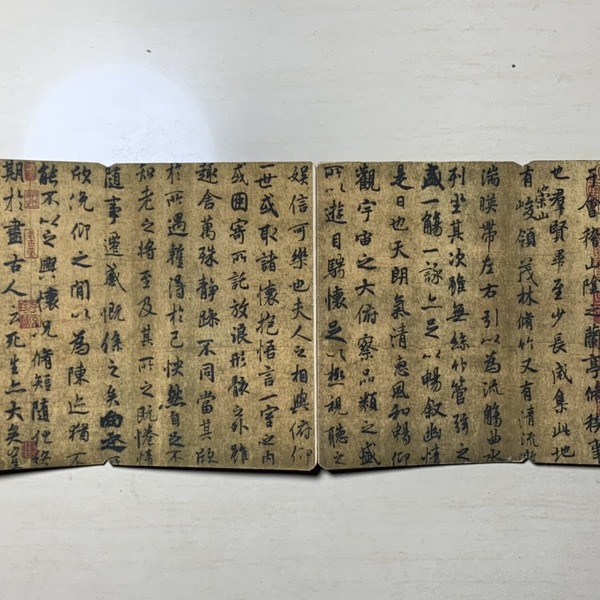 會稽山陰之蘭亭脩稧事
也羣賢畢至少長咸集此地
有崇山峻領茂林脩竹又有清流激
湍暎帶左右引以為流觴曲水
列坐其次雖無絲竹管弦之
盛一觴一詠亦足以暢叙幽情
是日也天朗氣清惠風和暢仰
觀宇宙之大俯察品類之盛
所以遊目騁懷足以極視聽之
娛信可樂也夫人之相與俯仰
一世或取諸懷抱悟言一室之內
或因寄所託放浪形骸之外雖
趣舍萬殊靜躁不同當其欣
於所遇暫得於己怏然自足不
知老之將至及其所之既惓情
隨事遷感慨係之矣向之所
欣俛仰之閒以為陳迹猶不
能不以之興懷況脩短隨化終
期於盡古人云死生亦大矣豈